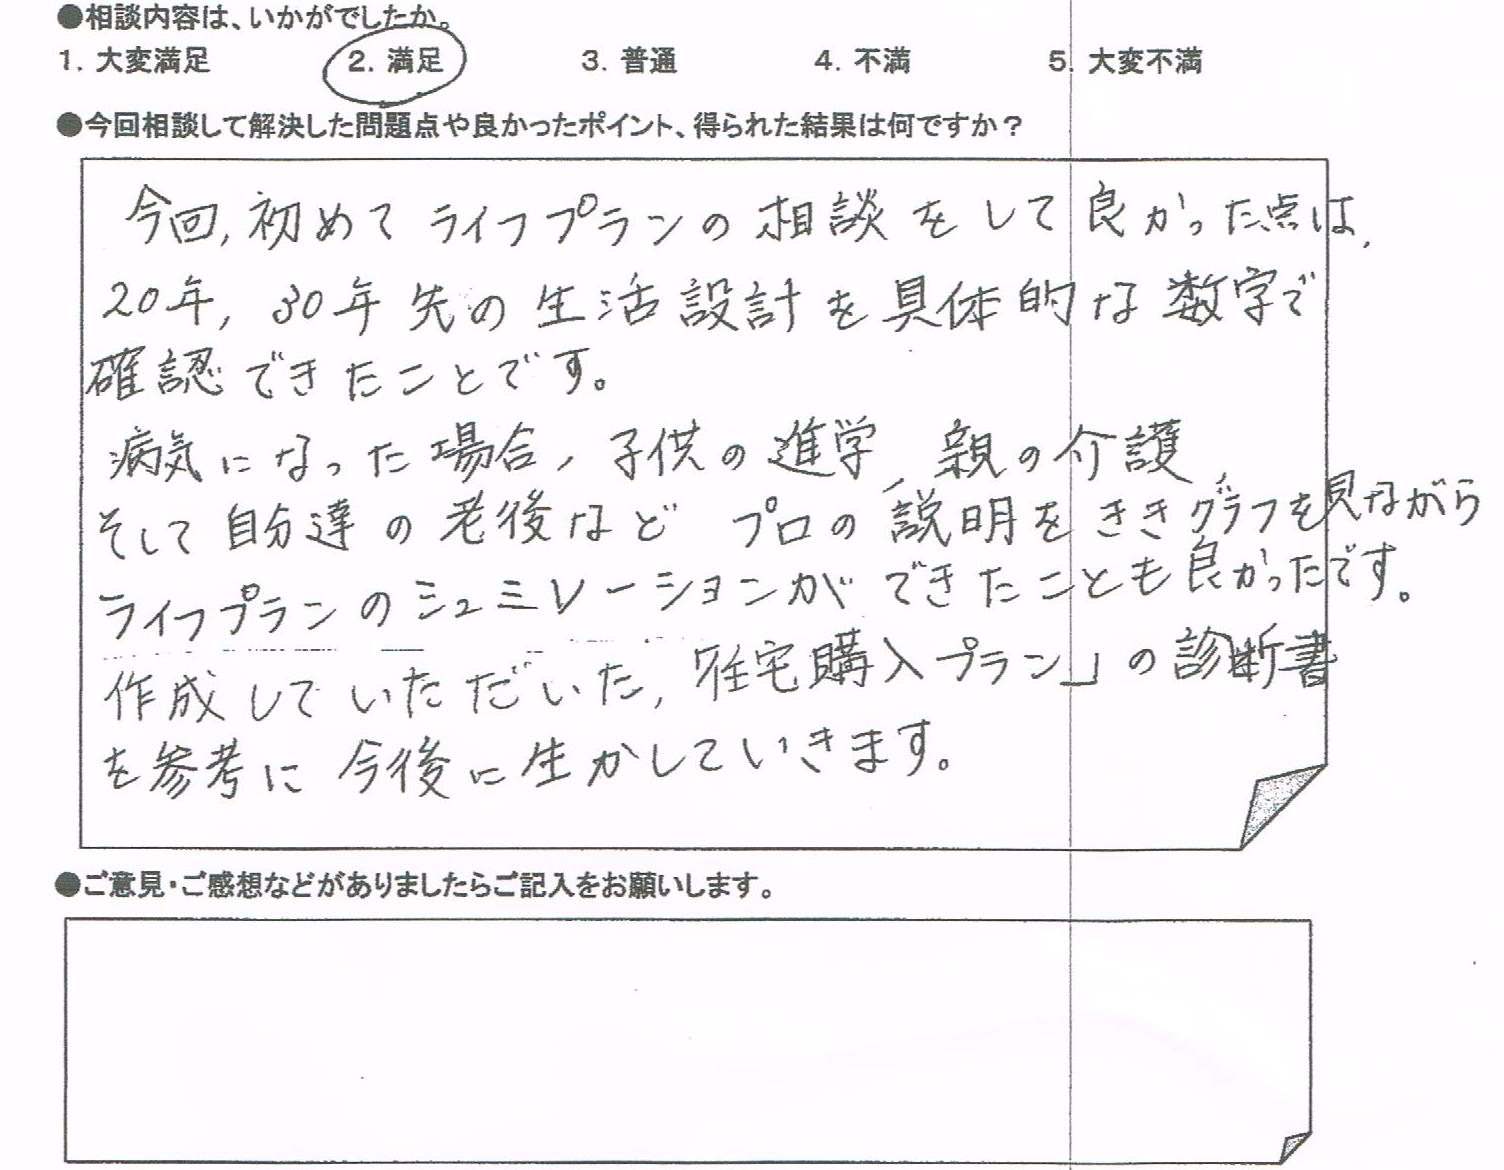 ●相談内容は、いかがでしたか。
1. 大変満足 2. 満足 3. 普通 4. 不満 5. 大変不満
●今回相談して解決した問題点や良かったポイント、得られた結果は何ですか？
今回,初めてライフプランの相談をして良かった点は,
20年,30年先の生活設計を具体的な数字で
確認できたことです。
病気になった場合、子供の進学、親の介護、
そして自分達の老後など プロの説明をききグラフを見ながら
ライフプランのシュミレーションができたことも良かったです。
作成していただいた,「住宅購入プラン」の診断書
を参考に今後に生かしていきます。
●ご意見・ご感想などがありましたらご記入をお願いします。